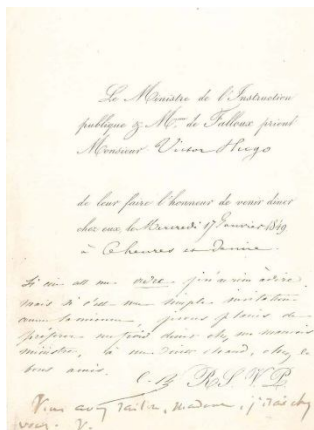 Le Ministre de l'Instruction
publique & Mme de Falloux prient
Monsieur Victor Hugo
de leur faire l'honneur de venir dîner
chez eux, le Mercredi 17 Janvier 1849
à 6 heures et demie.
Si c'est un ordre, je n'ai rien à dire
mais si c'est une simple invitation
comme la mienne, j'aurais plaisir de
préférer un froid dîner chez un mauvais
ministre, à un dîner chaud, chez de
bons amis.
R.S.V.P.
Vous avez raison, madame, j'irai chez
vous. V.